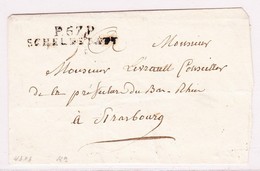 P.67.P.
SCHELESTATT
Monsieur
Monsieur Levrault Conseiller
de la préfecture du Bas-Rhin
à Strasbourg